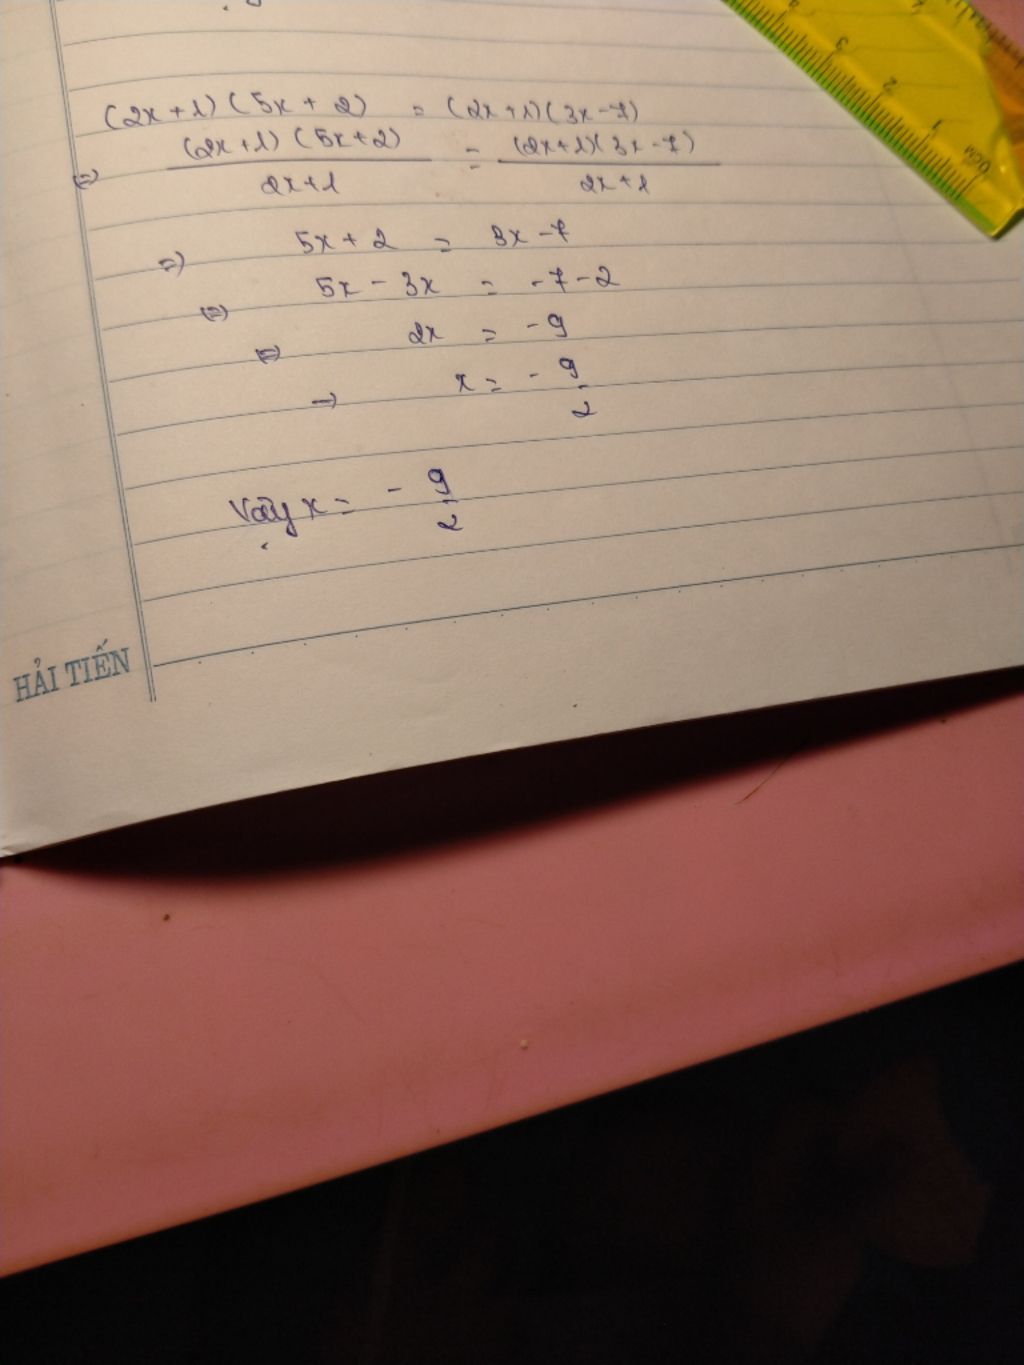 (2x+1)(5x+2) = (2x+1)(3x-7)
(=) (2x+1)(5x+2)/2x+1 = (2x+1)(3x-7)/2x+1
=) 5x+2 = 3x-7
(=) 5x-3x = -7-2
(=) 2x = -9
=) x = -9/2
Vậy x = -9/2
HẢI TIẾN
1 2 3
0CM